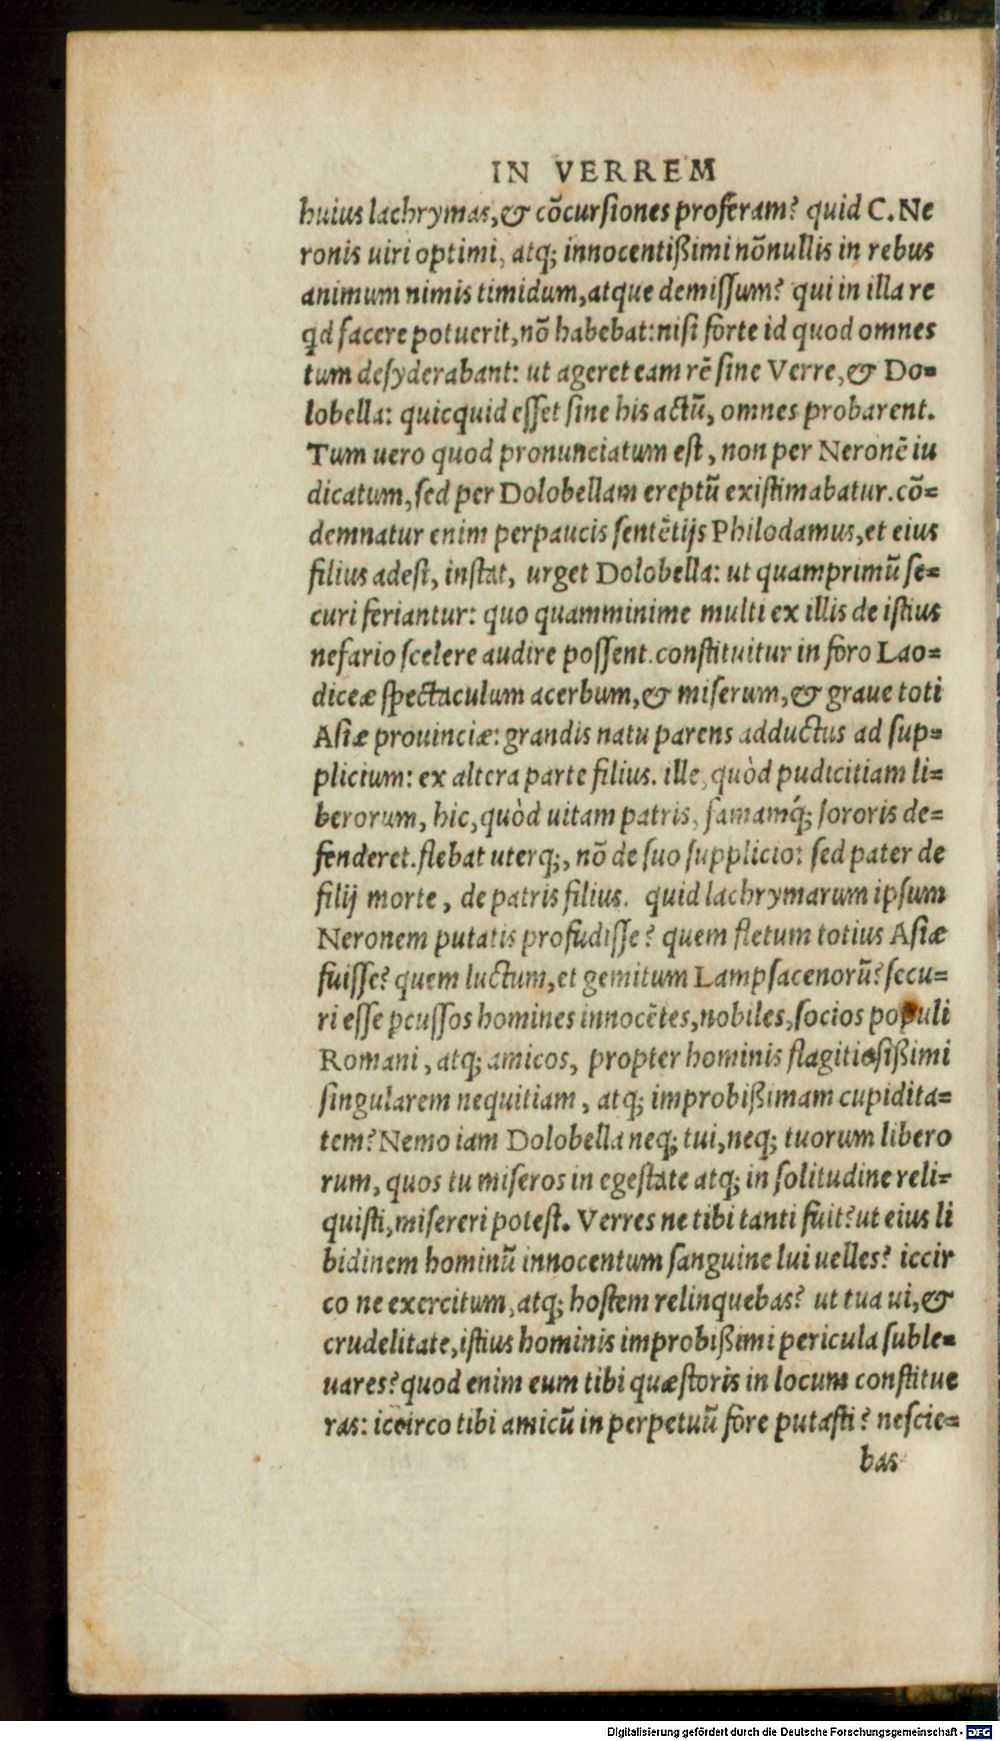 IN VERREM
huius lachrymas, & cõcursiones proferam? quid C. Ne
ronis uiri optimi, atq; innocentißimi nõnullis in rebus
animum nimis timidum, atque demissum? qui in illa re
qd facere potuerit, nõ habebat: nisi forte id quod omnes
tum desyderabant: ut ageret eam rẽ sine Verre, & Do=
lobella: quicquid esset sine his actũ, omnes probarent.
Tum uero quod pronunciatum est, non per Neronẽ iu
dicatum, sed per Dolobellam ereptũ existimabatur. cõ=
demnatur enim perpaucis sentẽtijs Philodamus, et eius
filius adest, instat, urget Dolobella: ut quamprimũ se=
curi feriantur: quo quamminime multi ex illis de istius
nefario scelere audire possent. constituitur in foro Lao=
diceæ spectaculum acerbum, & miserum, & graue toti
Asiæ prouinciæ: grandis natu parens adductus ad sup=
plicium: ex altera parte filius. ille, quòd pudicitiam li=
berorum, hic, quòd uitam patris, famamq́; sororis de=
fenderet. flebat uterq;, nõ de suo supplicio: sed pater de
filij morte, de patris filius. quid lachrymarum ipsum
Neronem putatis profudisse? quem fletum totius Asiæ
fuisse? quem luctum, et gemitum Lampsacenorũ? secu=
ri esse pcussos homines innocẽtes, nobiles, socios populi
Romani, atq; amicos, propter hominis flagitiosißimi
singularem nequitiam, atq; improbißimam cupidita=
tem? Nemo iam Dolobella neq; tui, neq; tuorum libero
rum, quos tu miseros in egestate atq; in solitudine reli=
quisti, misereri potest. Verres ne tibi tanti fuit? ut eius li
bidinem hominũ innocentum sanguine lui uelles? iccir
co ne exercitum, atq; hostem relinquebas? ut tua ui, &
crudelitate, istius hominis improbißimi pericula suble=
uares? quod enim eum tibi quæstoris in locum constitue
ras: iccirco tibi amicũ in perpetuũ fore putasti? nescie=
bas
Digitalisierung gefördert durch die Deutsche Forschungsgemeinschaft - DFG